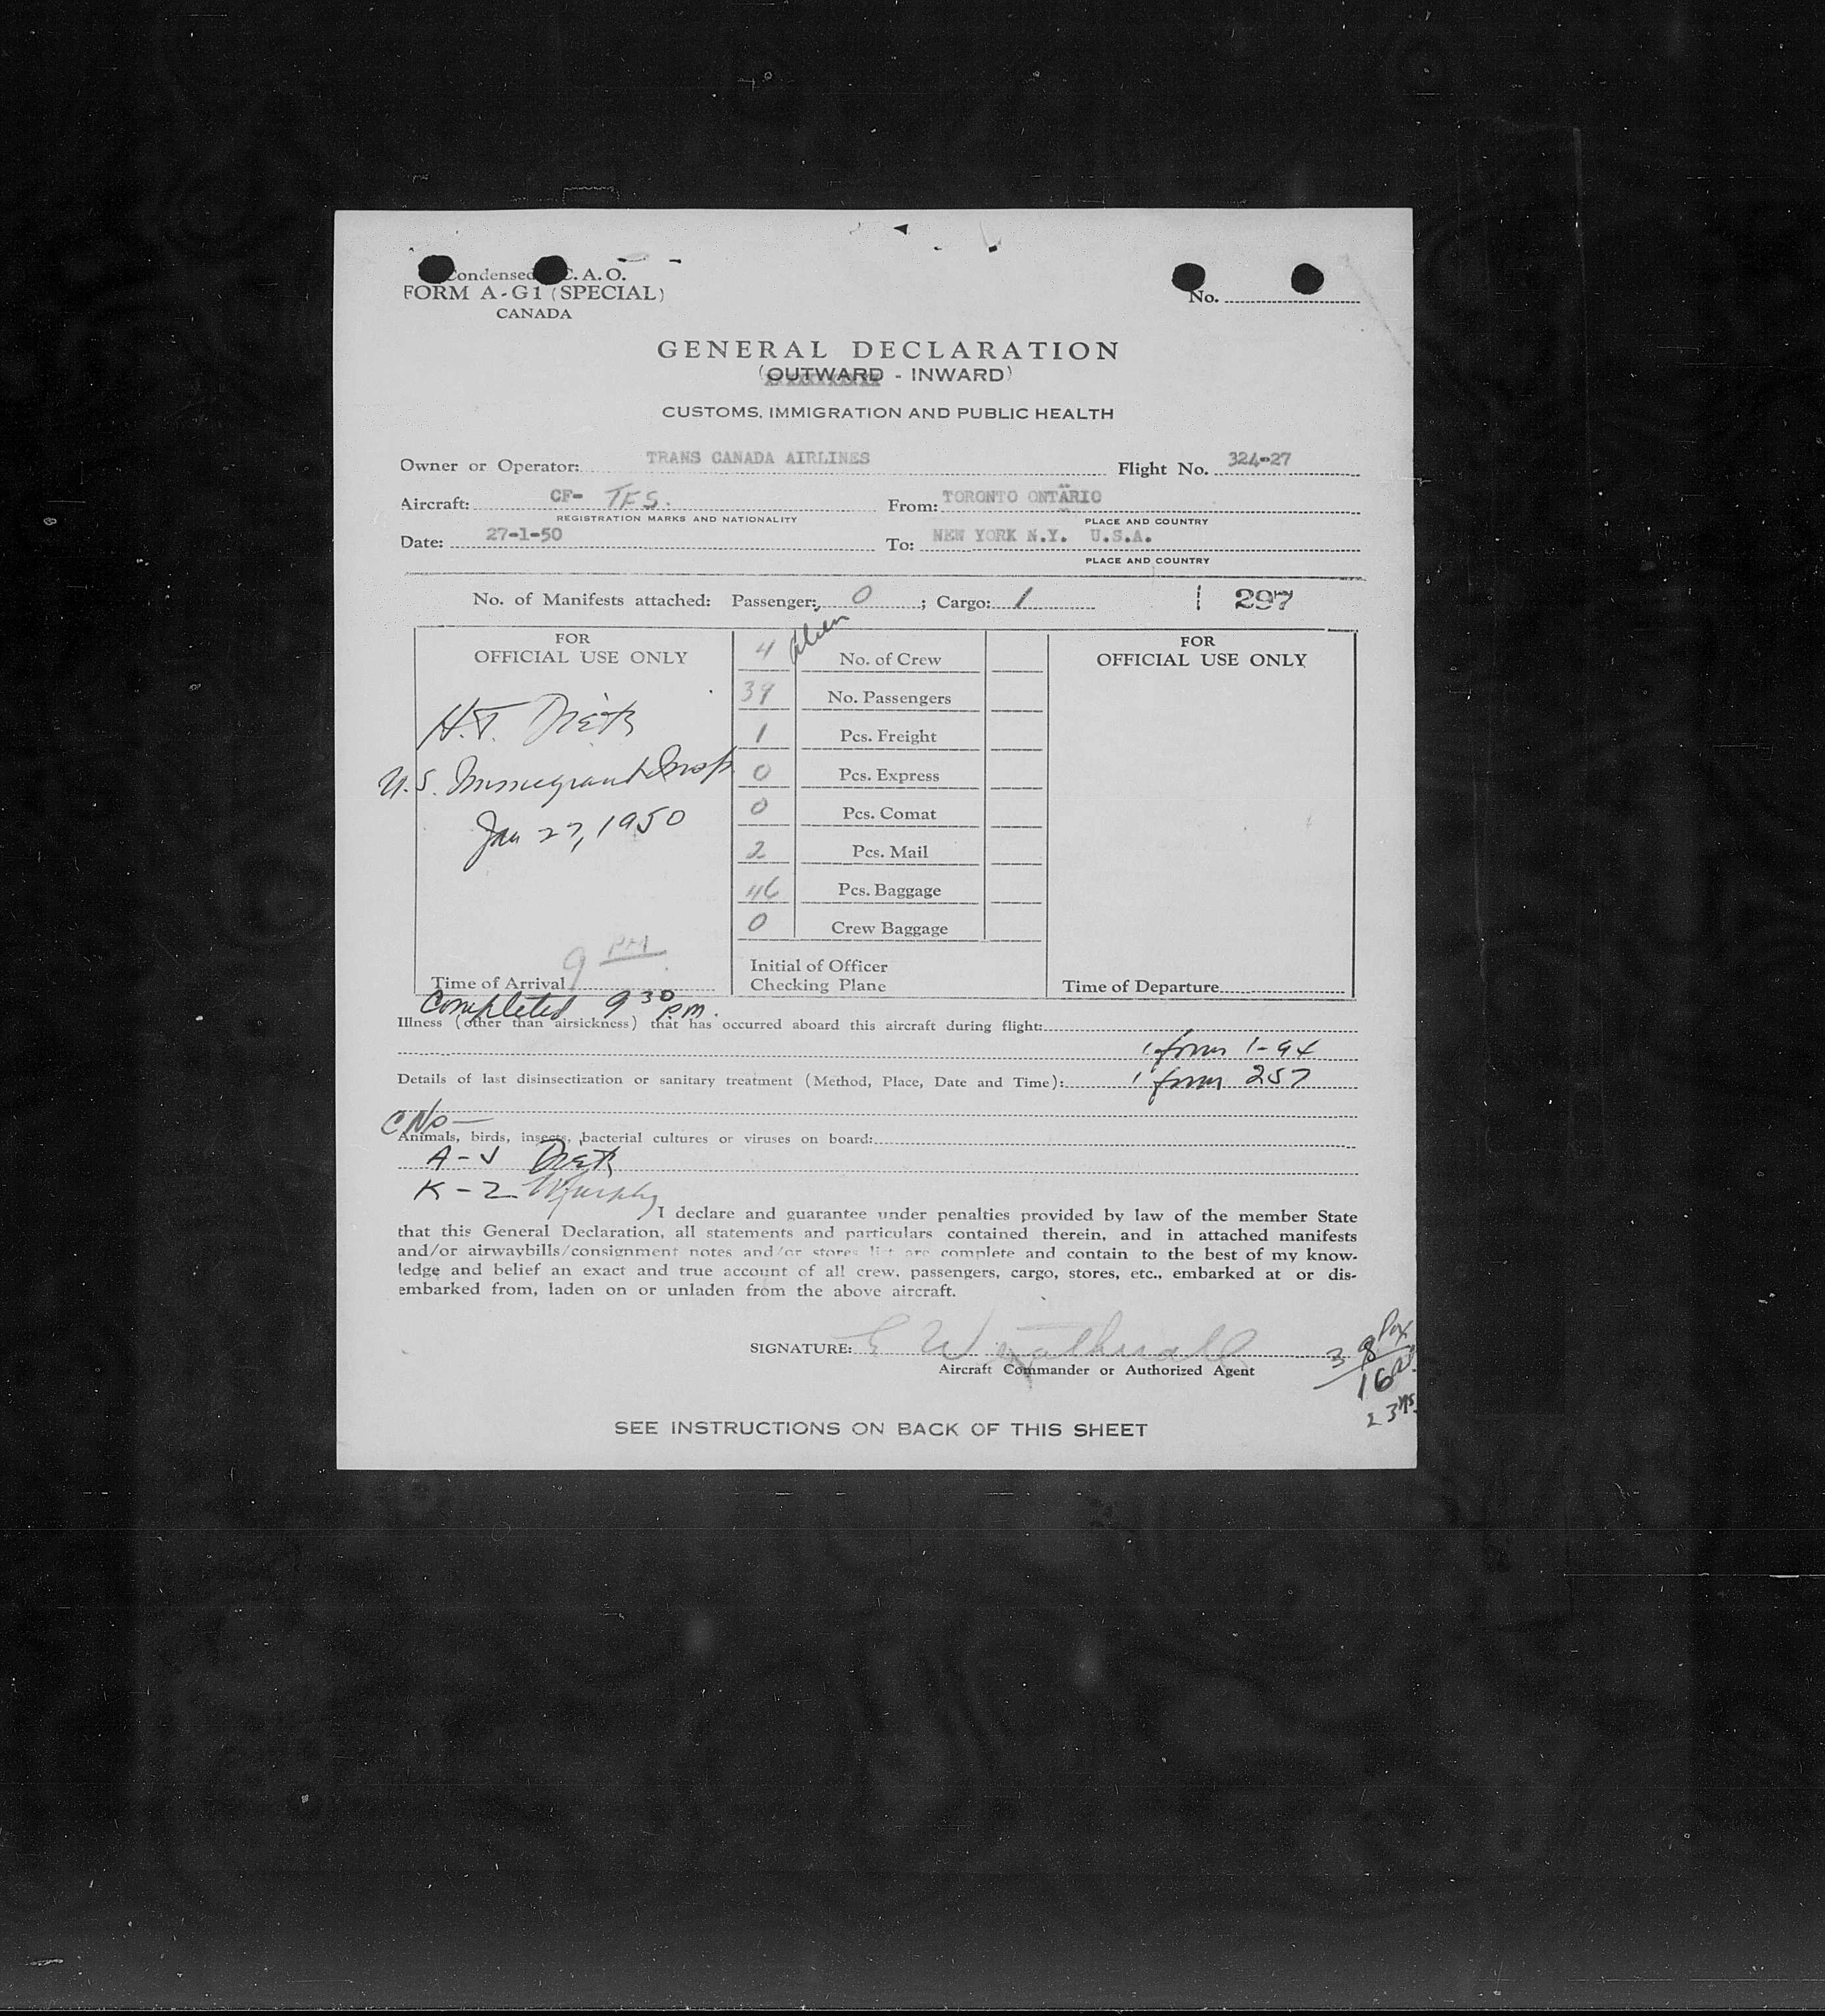 Condensed C.A.O.
FORM A-G1 (SPECIAL)
CANADA
No.
GENERAL DECLARATION
(OUTWARD - INWARD)
CUSTOMS, IMMIGRATION AND PUBLIC HEALTH
Owner or Operator: TRANS CANADA AIRLINES Flight No. 324-27
Aircraft: CF- TFS. From: TORONTO ONTARIO
REGISTRATION MARKS AND NATIONALITY PLACE AND COUNTRY
Date: 27-1-50 To: NEW YORK N.Y. U.S.A.
PLACE AND COUNTRY
No. of Manifests attached: Passenger: 0 ; Cargo: 1 297
FOR
OFFICIAL USE ONLY
4 alien No. of Crew
39 No. Passengers
1 Pcs. Freight
0 Pcs. Express
0 Pcs. Comat
2 Pcs. Mail
46 Pcs. Baggage
0 Crew Baggage
Initial of Officer
Checking Plane
FOR
OFFICIAL USE ONLY
H.T.
U.S. Immigrant Insp
Jan 27, 1950
Time of Arrival 9 PM
Time of Departure
Completed 9 30 P.M.
Illness (other than airsickness) that has occurred aboard this aircraft during flight:
1 form 1-94
Details of last disinsectization or sanitary treatment (Method, Place, Date and Time): 1 form 257
Animals, birds, insects, bacterial cultures or viruses on board:
A-J
K-Z Murphy
I declare and guarantee under penalties provided by law of the member State
that this General Declaration, all statements and particulars contained therein, and in attached manifests
and/or airwaybills/consignment notes and/or stores list are complete and contain to the best of my know-
ledge and belief an exact and true account of all crew, passengers, cargo, stores, etc., embarked at or dis-
embarked from, laden on or unladen from the above aircraft.
SIGNATURE:
Aircraft Commander or Authorized Agent
38 Pax
16
23
SEE INSTRUCTIONS ON BACK OF THIS SHEET